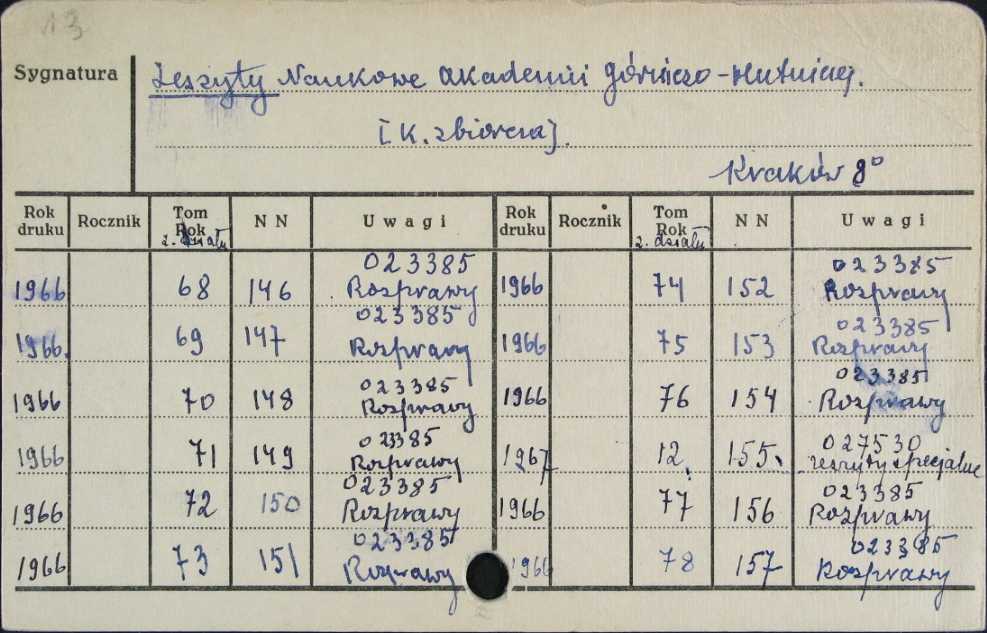 13
Sygnatura
Zeszyty Naukowe Akademii Górniczo-Hutniczej.
[K. zbiorcza].
Kraków 8°
Rok druku | Rocznik | Tom Rok z. działu | N N | Uwagi | Rok druku | Rocznik | Tom Rok z. działu | N N | Uwagi
1966 | 68 | 146 | 023385 Rozprawy | 1966 | 74 | 152 | 023385 Rozprawy
1966. | 69 | 147 | 023385 Rozprawy | 1966 | 75 | 153 | 023385 Rozprawy
1966 | 70 | 148 | 023385 Rozprawy | 1966 | 76 | 154 | 023385 Rozprawy
1966 | 71 | 149 | 023385 Rozprawy | 1967 | 12. | 155. | 027530 zeszyty specjalne
1966 | 72 | 150 | 023385 Rozprawy | 1966 | 77 | 156 | 023385 Rozprawy
1966 | 73 | 151 | 023385 Rozprawy | 1966 | 78 | 157 | 023385 Rozprawy